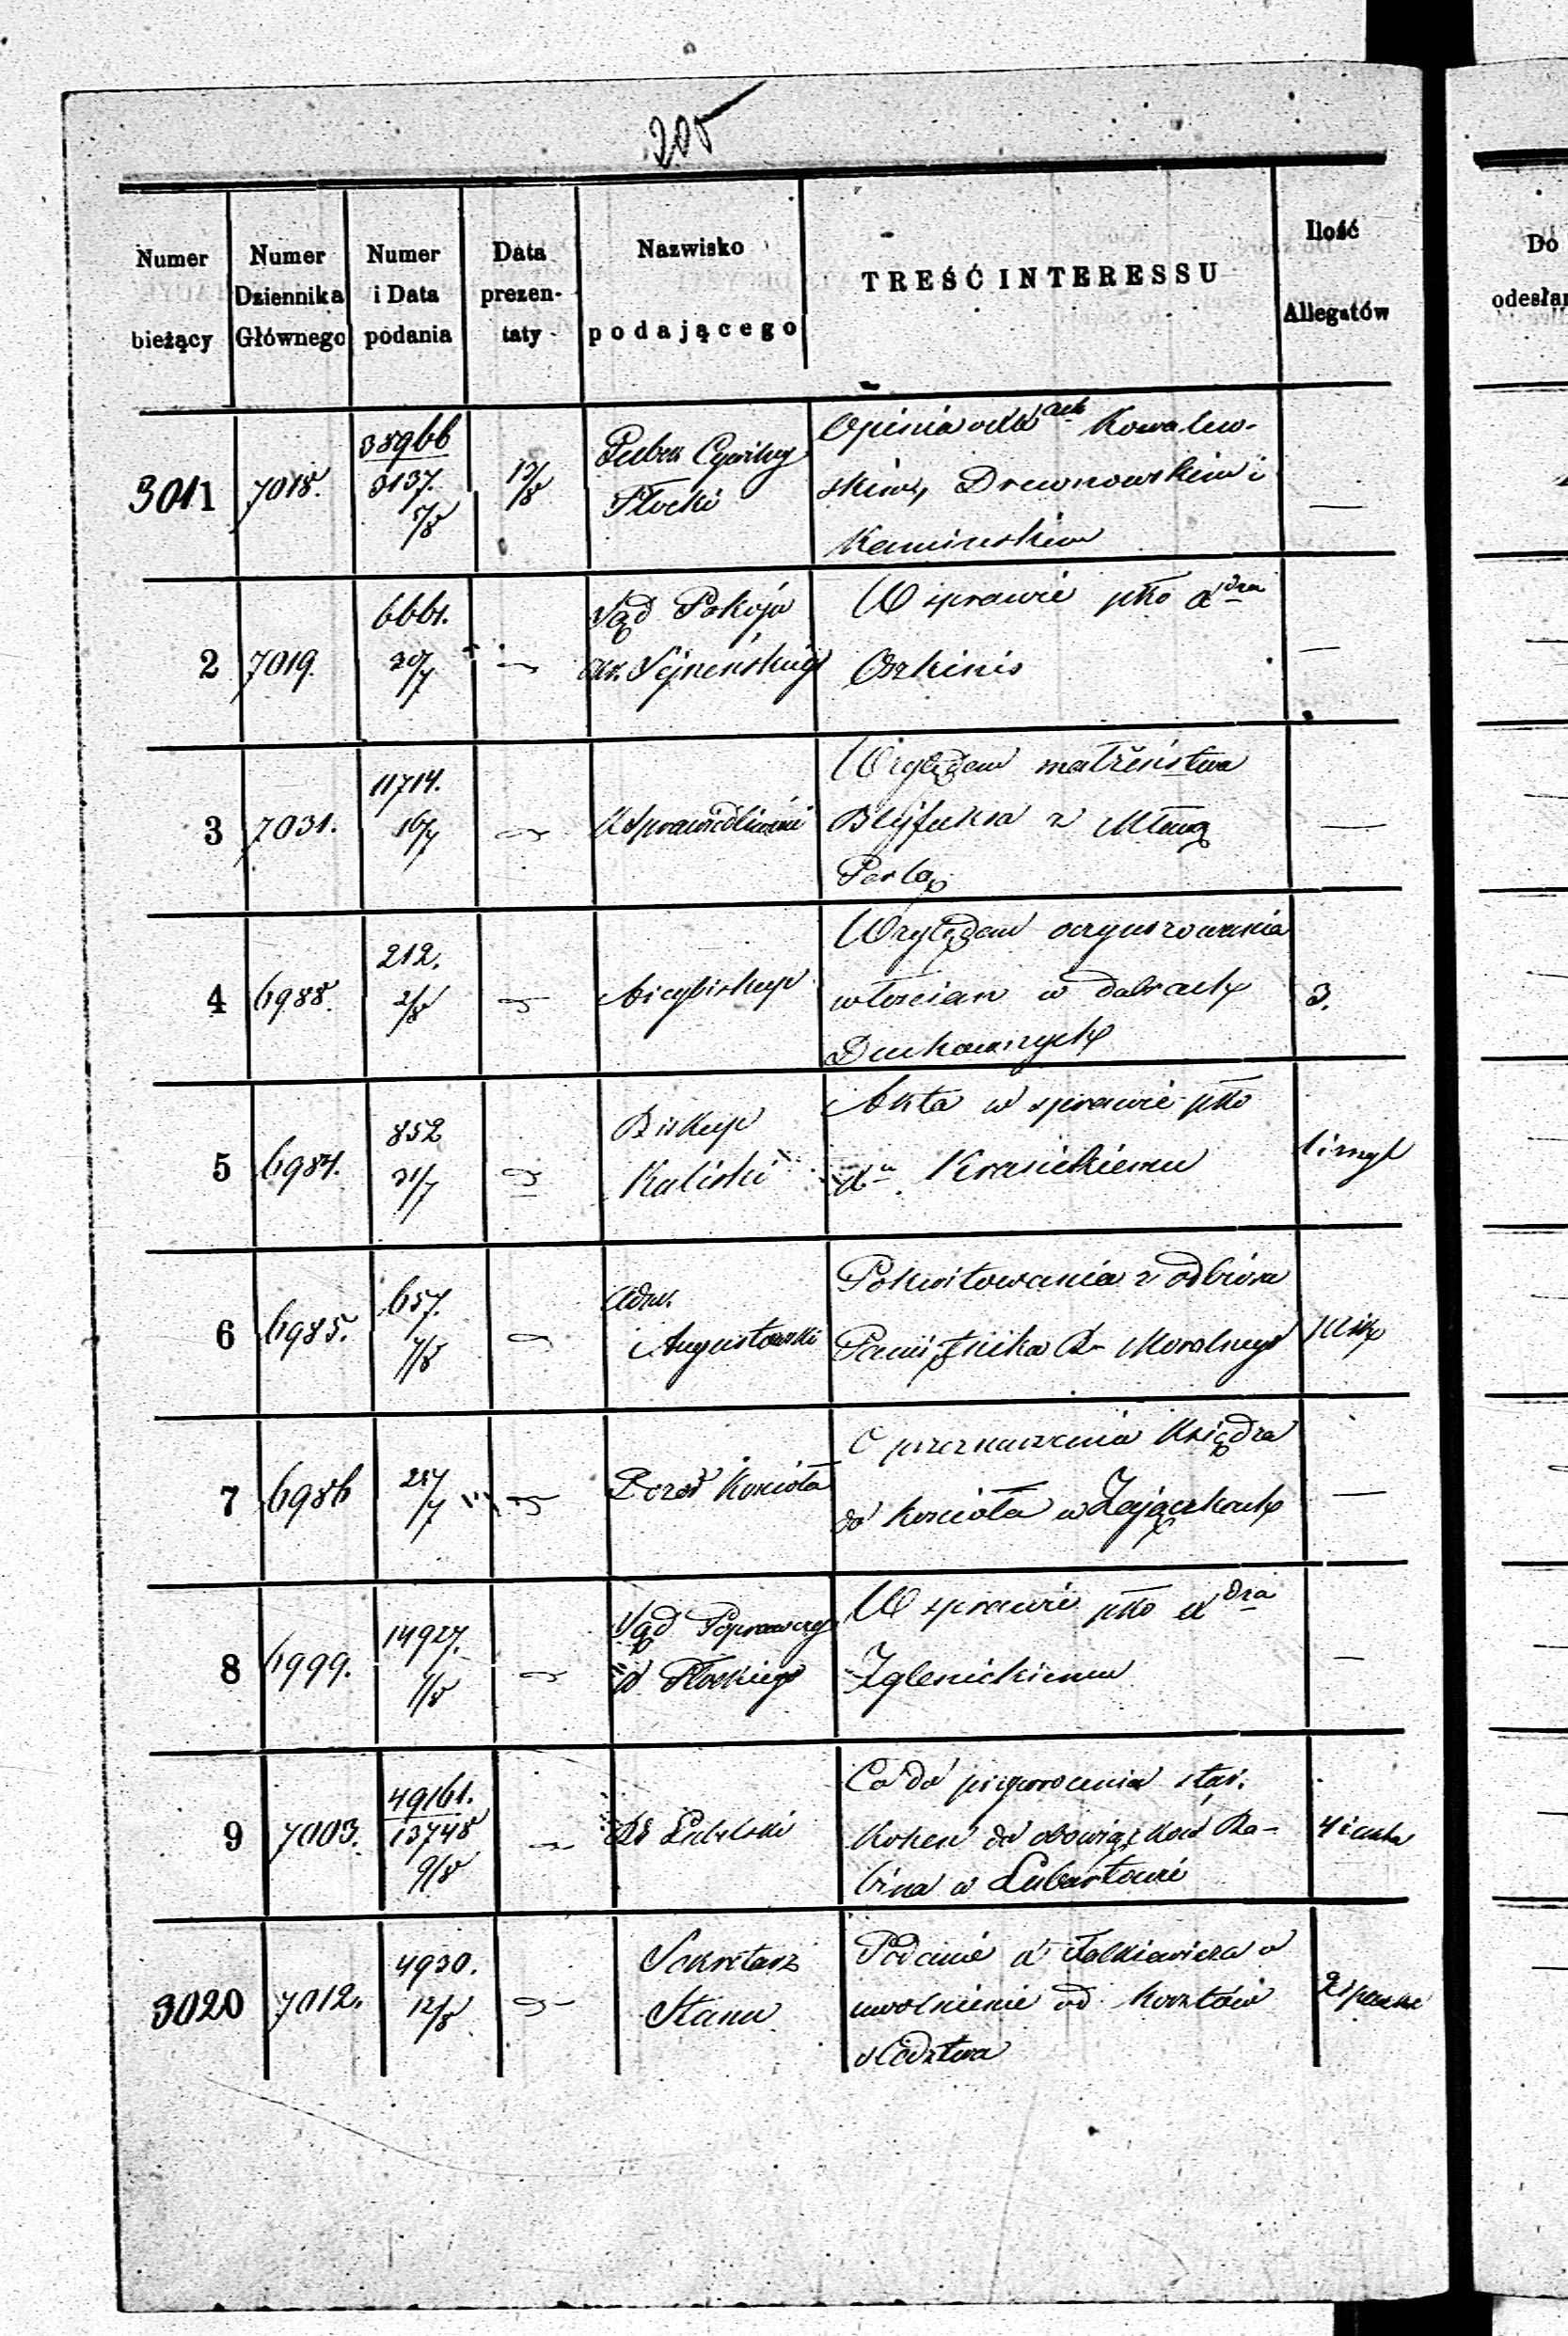 205
Numer bieżący
Numer Dziennika Głównego
Numer i Data podania
Data prezen-taty
Nazwisko podającego
TREŚĆ INTERESSU
Ilość Allegatów
Do
3011 7018. 38966 3137. 5/8 13/8
Guber Cywilny
Płocki
Opinia o
Kowalew-
skim, Drewnowskim i
Kamieńskim
—
2 7019. 6661. 20/7
Sąd Pokoju
Sejneńskiego
W sprawie pko Xdza
Oszkinis
—
3 7031. 11714. 16/7
Względem małżeństwa
z
Perlą
—
4 6988. 212. 2/8
Arcybiskup
Względem oczynszowania
włościan w dobrach
Duchownych
3.
5 6984. 852 31/7
Biskup
Kaliski
Akta w sprawie pko
Krasickiemu
6 6985. 657. 4/8
Adm.
Augustowski
Pokwitowania z odbioru
Pamiętnika R. Moralnego
7 6986 /7
Dozór Kościoła
O przeznaczenia Księdza
do Kościoła w Zajączkach
—
8 6999. 14927. 1/8
Sąd Poprawczy
Płockiego
W sprawie pko Xdza
Zglenickiemu
—
9 7003. 49161. 13748 9/8
Lubelski
Co do przywrócenia star.
Kohen do obowiązków Ra-
bina w Lubartowie
3020 7012. 4930. 12/8
Sekretarz
Stanu
Podanie X Falkiewicza o
uwolnienie od kosztów
śledztwa